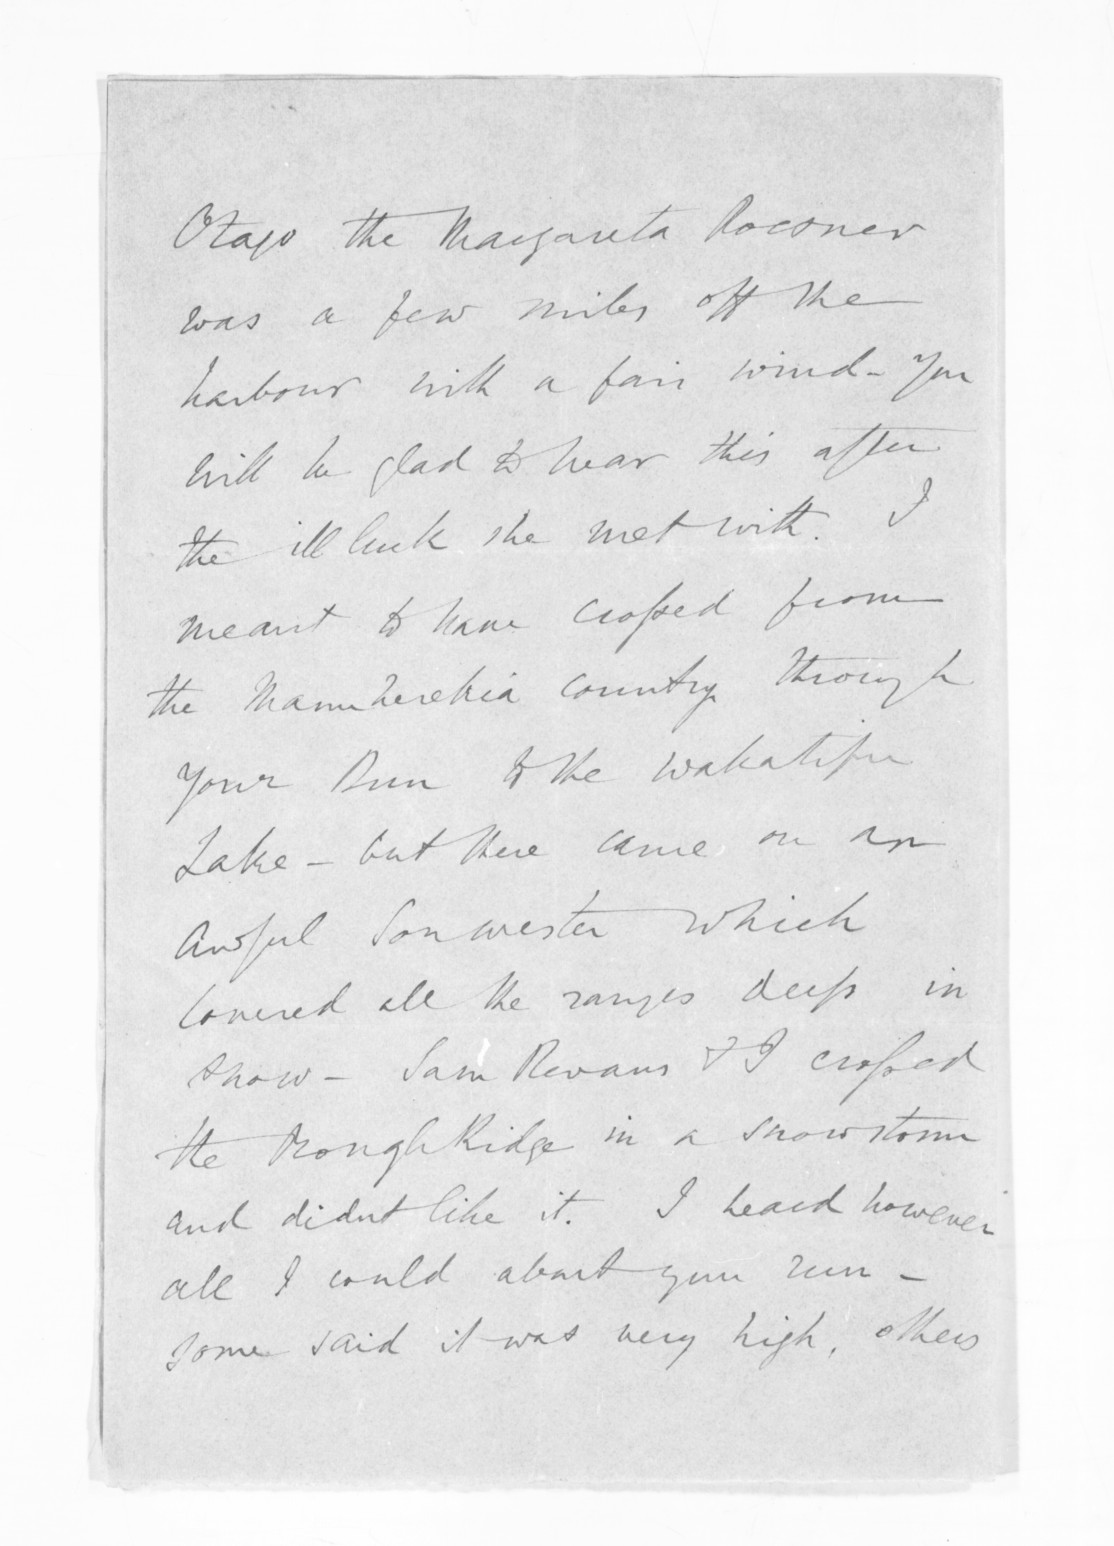 Otago the Margareta Roesner
was a few miles off the
harbour with a fair wind - You
will be glad to hear this after
the ill luck she met with. I
meant to have crossed from
the Manuherekia country through
your Run to the Wakatipu
Lake - but there came on an
awful Sou wester which
covered all the ranges deep in
snow - Sam Revans & I crossed
the Rough Ridge in a snowstorm
and didnt like it. I heard however
all I could about your run -
some said it was very high, others